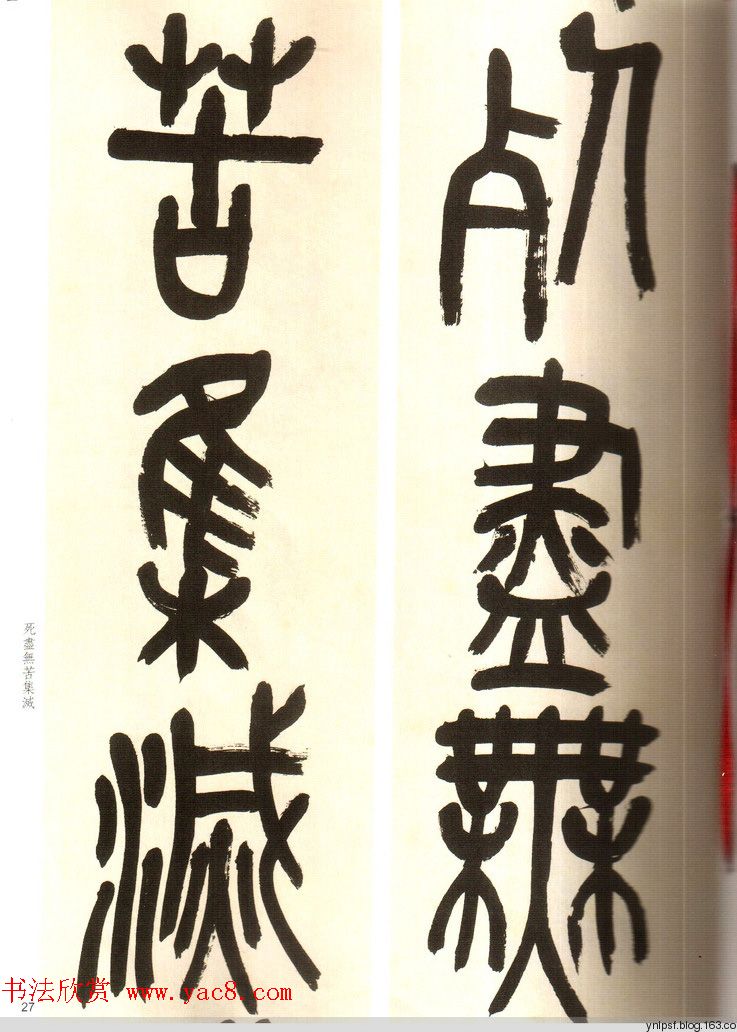 死盡無
苦集滅
死盡無苦集滅
27
书法欣赏 www.yac8.com
ynlpsf.blog.163.co